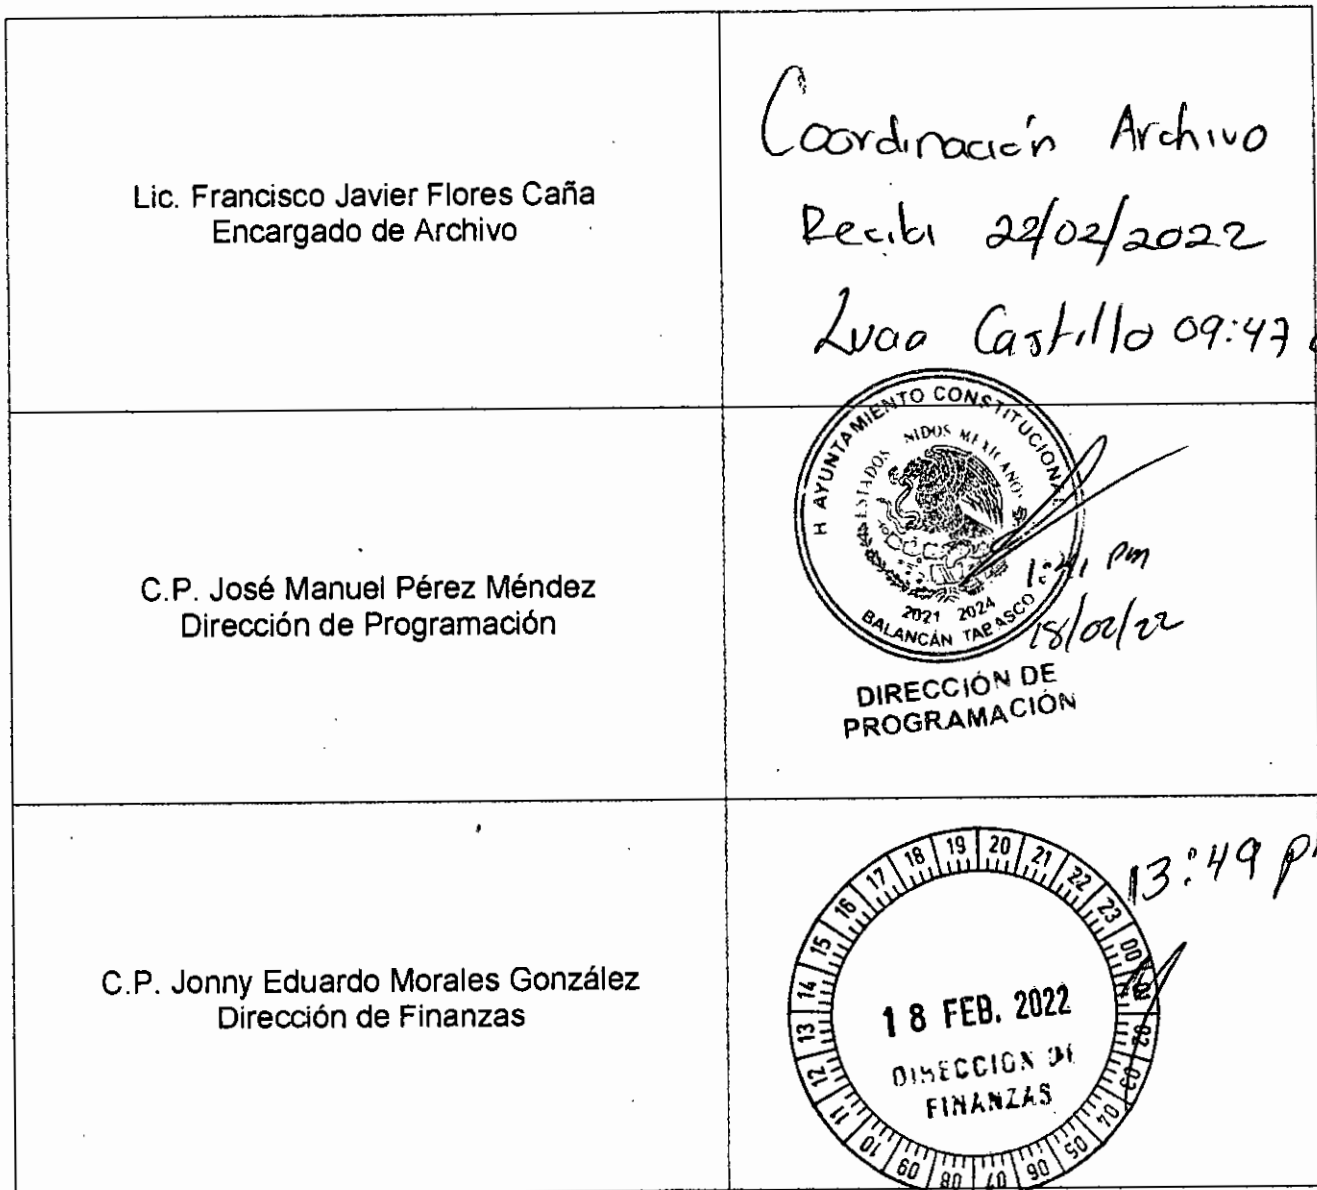 Lic. Francisco Javier Flores Caña
Encargado de Archivo
Coordinación Archivo
Recibi 22/02/2022
Castillo 09:47
C.P. José Manuel Pérez Méndez
Dirección de Programación
H AYUNTAMIENTO CONSTITUCIONAL
ESTADOS NIDOS MEXICANOS
2021 2024
BALANCÁN TABASCO
pm
18/02/22
DIRECCIÓN DE
PROGRAMACIÓN
C.P. Jonny Eduardo Morales González
Dirección de Finanzas
13:49 p
00 01 02 03 04 05 06 07 08 09 10 11 12 13 14 15 16 17 18 19 20 21 22 23
18 FEB. 2022
DIRECCION DE
FINANZAS